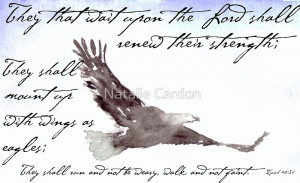 They that wait upon the Lord shall
renew their strength;
They shall
mount up
with wings as
eagles;
They shall run and not be weary, walk and not faint.
© Natalie Cardon